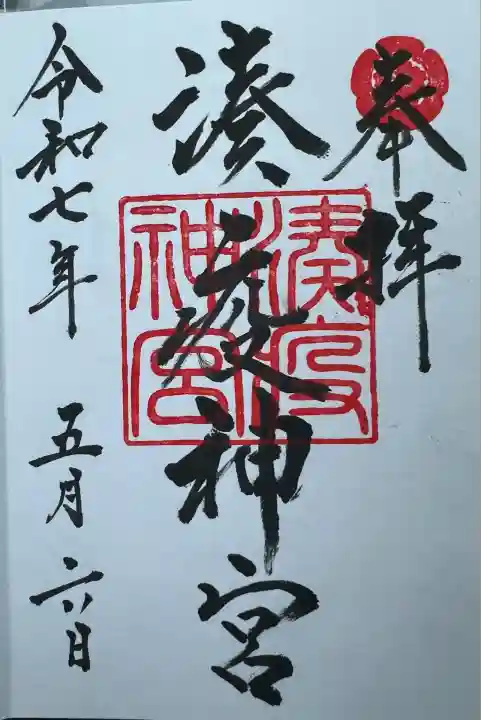 奉拝
湊疫神宮
湊疫
神宮
令和七年 五月 六日